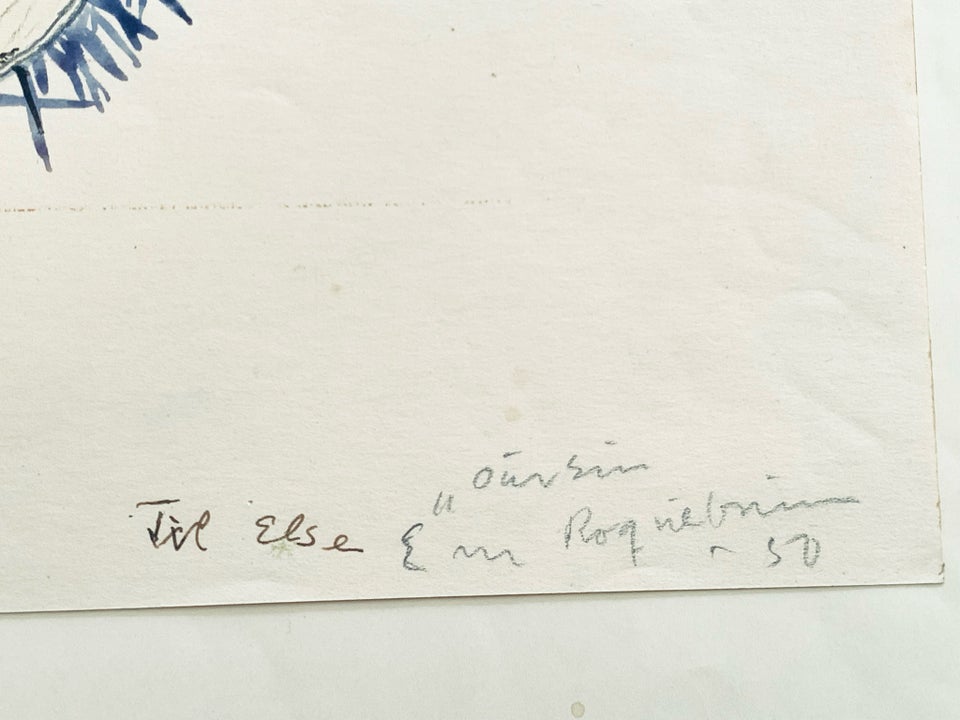 Oursin
Til Else
Roquebrun
- 50